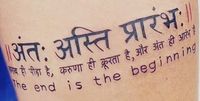 ॥अंतः अस्ति प्रारंभः॥
ही पीड़ा है, करुणा ही क्रूरता है, और अंत ही आरंभ
The end is the beginning